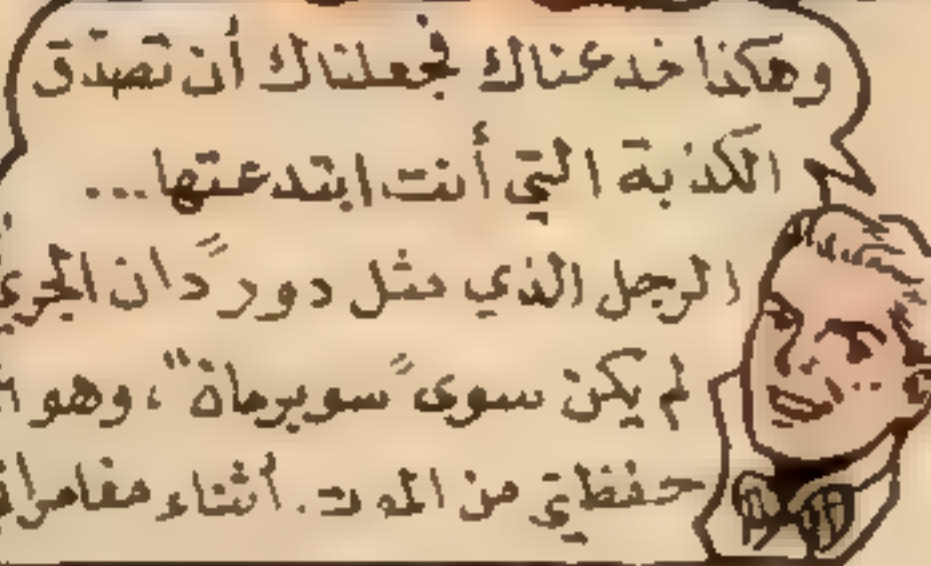 وهكذا خدعناك فجعلناك أن تصدق
الكذبة التي أنت ابتدعتها...
الرجل الذي مثل دور "دان الجري
لم يكن سوى "سوبرمان"، وهو
حفظني من الموت. أثناء مغامرا